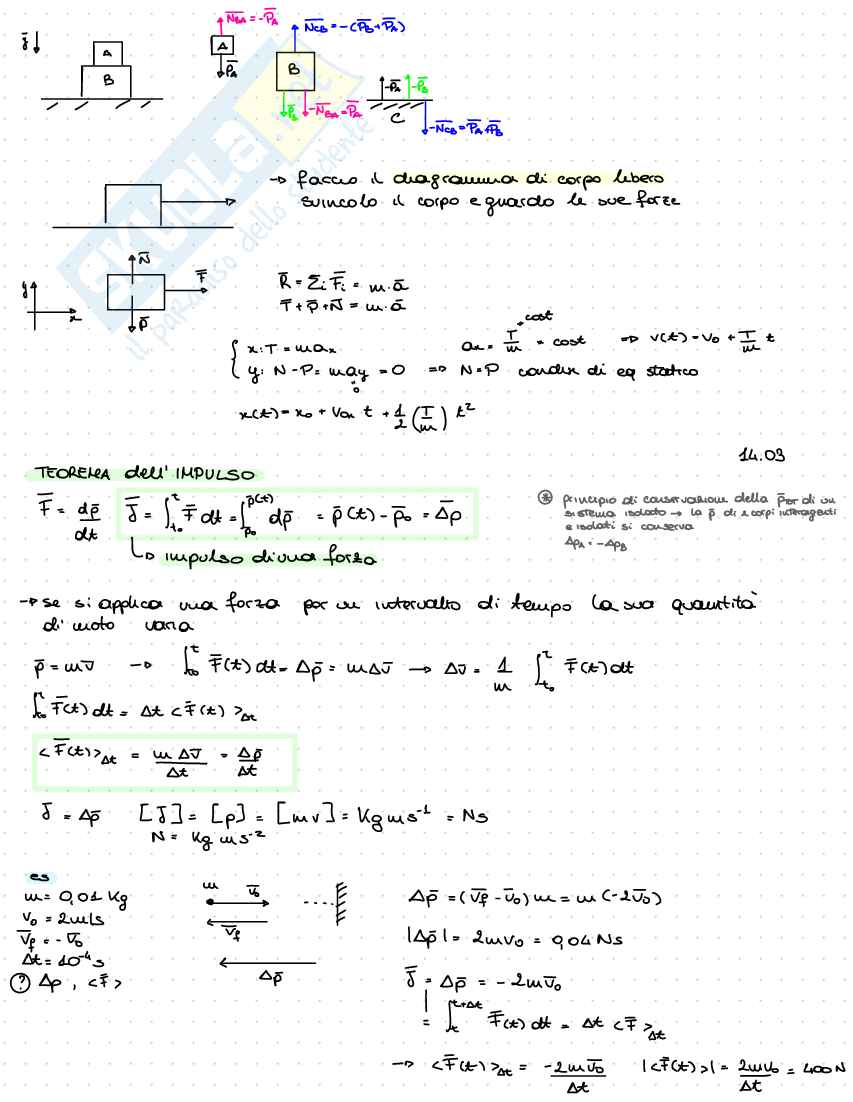 ḡ
A
B
N̄_BA = -P̄_A
A
P̄_A
N̄_CB = -(P̄_B + P̄_A)
B
P̄_B
-N̄_BA = P̄_A
-P̄_A
-P̄_B
C
-N̄_CB = P̄_A + P̄_B
SKUOLA.net
il paradiso dello studente
→ faccio il diagramma di corpo libero
svincolo il corpo e guardo le sue forze
y
x
N̄
F̄
P̄
R̄ = Σᵢ F̄ᵢ = m·ā
T̄ + P̄ + N̄ = m·ā
x: T = maₓ
y: N - P = ma_y = 0 ⇒ N = P condiz di eq statico
=0
aₓ = T/m = cost ⇒ v(t) = v₀ + T/m t
cost
x(t) = x₀ + v₀ₓ t + 1/2 (T/m) t²
14.03
TEOREMA dell'IMPULSO
F̄ = dp̄/dt
J̄ = ∫_t₀^t F̄ dt = ∫_p̄₀^p̄(t) dp̄ = p̄(t) - p̄₀ = Δp̄
impulso di una forza
⊛ principio di conservazione della p̄_tot di un
sistema isolato → la p̄ di 2 corpi interagenti
e isolati si conserva
Δp_A = -Δp_B
→ se si applica una forza per un intervallo di tempo la sua quantità
di moto varia
p̄ = mv̄ → ∫_t₀^t F̄(t) dt = Δp̄ = mΔv̄ → Δv̄ = 1/m ∫_t₀^t F̄(t) dt
∫_t₀^t F̄(t) dt = Δt <F̄(t)>_Δt
<F̄(t)>_Δt = mΔv̄/Δt = Δp̄/Δt
J̄ = Δp̄ [J̄] = [p] = [mv] = Kg m s⁻¹ = Ns
N = Kg m s⁻²
es
m = 0,01 Kg
v₀ = 2m/s
v̄_f = -v̄₀
Δt = 10⁻⁴ s
? Δp, <F̄>
m
v̄₀
v̄_f
Δp̄
Δp̄ = (v̄_f - v̄₀) m = m (-2v̄₀)
|Δp̄| = 2mv₀ = 0,04 Ns
J̄ = Δp̄ = -2mv̄₀
= ∫_t^t+Δt F̄(t) dt = Δt <F̄>_Δt
→ <F̄(t)>_Δt = -2mv̄₀/Δt |<F̄(t)>| = 2mv₀/Δt = 400 N